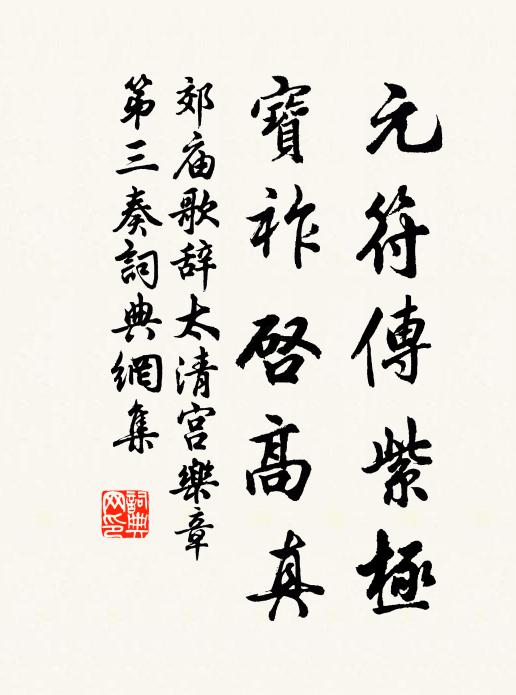 元符傳紫極
寶祚啓高真
郊庙歌辞太清宫樂章
第三奏詞典網集
詞典网印